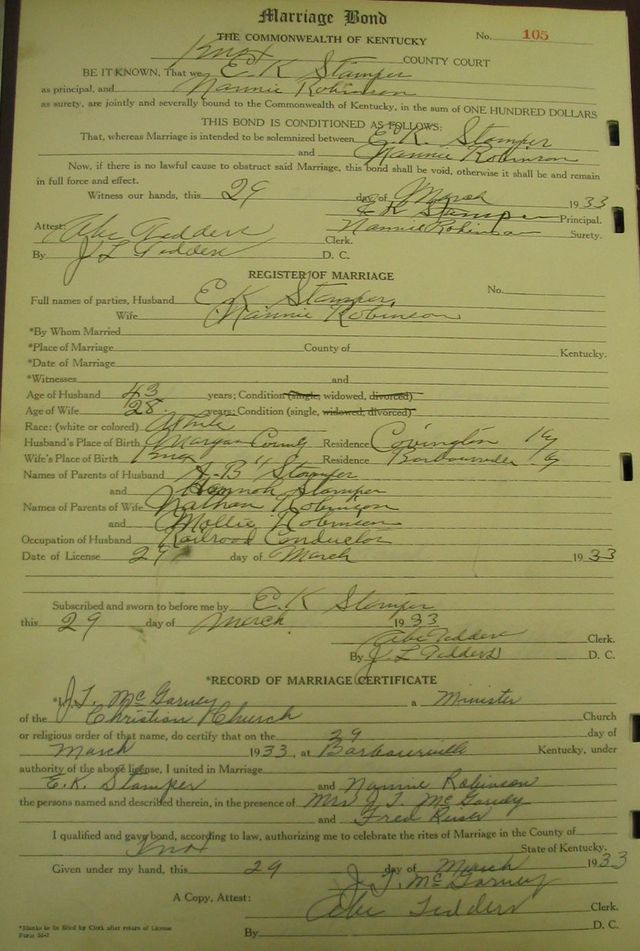 Marriage Bond
THE COMMONWEALTH OF KENTUCKY No. 105
Knox COUNTY COURT
BE IT KNOWN, That we E. K Stamper
as principal, and Nannie Robinson
as surety, are jointly and severally bound to the Commonwealth of Kentucky, in the sum of ONE HUNDRED DOLLARS
THIS BOND IS CONDITIONED AS FOLLOWS:
That, whereas Marriage is intended to be solemnized between E. K. Stamper
and Nannie Robinson
Now, if there is no lawful cause to obstruct said Marriage, this bond shall be void, otherwise it shall be and remain
in full force and effect.
Witness our hands, this 29 day of March 1933
E K Stamper Principal.
Attest: Abe Tedders Nannie Robinson Surety.
Clerk.
By J L Tedders D. C.
REGISTER OF MARRIAGE
Full names of parties, Husband E K Stamper, No.
Wife Nannie Robinson
*By Whom Married
*Place of Marriage County of Kentucky.
*Date of Marriage
*Witnesses and
Age of Husband 43 years; Condition (single, widowed, divorced)
Age of Wife 28 years; Condition (single, widowed, divorced)
Race: (white or colored) White
Husband's Place of Birth Morgan County Residence Covington Ky
Wife's Place of Birth Knox " Residence Barbourville Ky
Names of Parents of Husband B Stamper
and Hannah Stamper
Names of Parents of Wife Nathan Robinson
and Mollie Robinson
Occupation of Husband Railroad Conductor
Date of License 29 day of March 1933
Subscribed and sworn to before me by E. K Stamper
this 29 day of March 1933
Abe Tedders Clerk.
By J L Tedders D. C.
*RECORD OF MARRIAGE CERTIFICATE
*I, J. T. McGarvey a Minister
of the Christian Church Church
or religious order of that name, do certify that on the 29 day of
March 1933, at Barbourville Kentucky, under
authority of the above license, I united in Marriage
E. K. Stamper and Nannie Robinson
the persons named and described therein, in the presence of Mrs J. T. McGarvey
and Fred
I qualified and gave bond, according to law, authorizing me to celebrate the rites of Marriage in the County of
Knox State of Kentucky.
Given under my hand, this 29 day of March 1933
J. T. McGarvey
A Copy, Attest: Abe Tedders Clerk.
By D. C.
*Blanks to be filled by Clerk after return of License